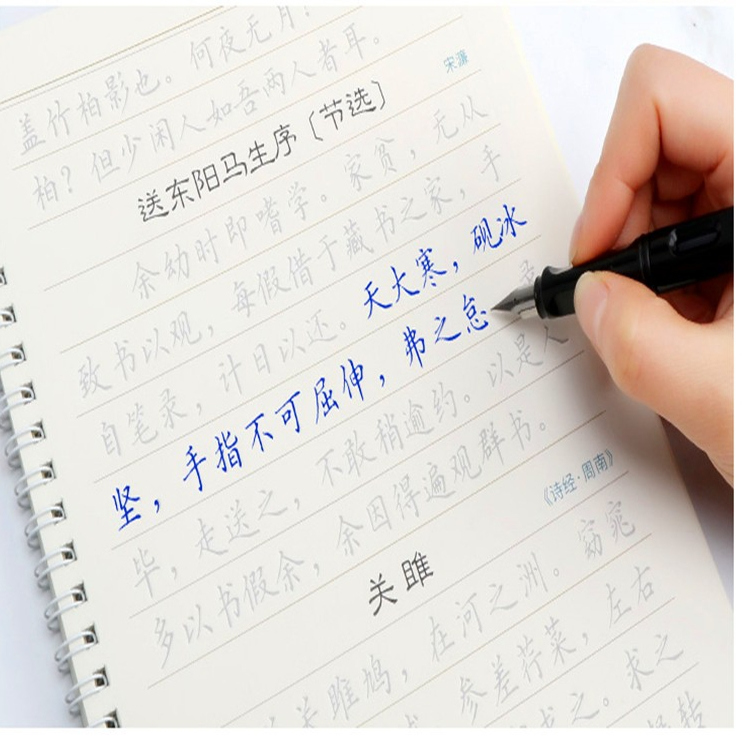 盖竹柏影也。何夜无月？
柏？但少闲人如吾两人者耳。
宋濂
送东阳马生序〔节选〕
余幼时即嗜学。家贫，无从
致书以观，每假借于藏书之家，手
自笔录，计日以还。天大寒，砚冰
坚，手指不可屈伸，弗之怠
毕，走送之，不敢稍逾约。以是人
多以书假余，余因得遍观群书。
《诗经·周南》
关雎
关雎鸠，在河之洲。窈窕
参差荇菜，左右
求之。求之
转